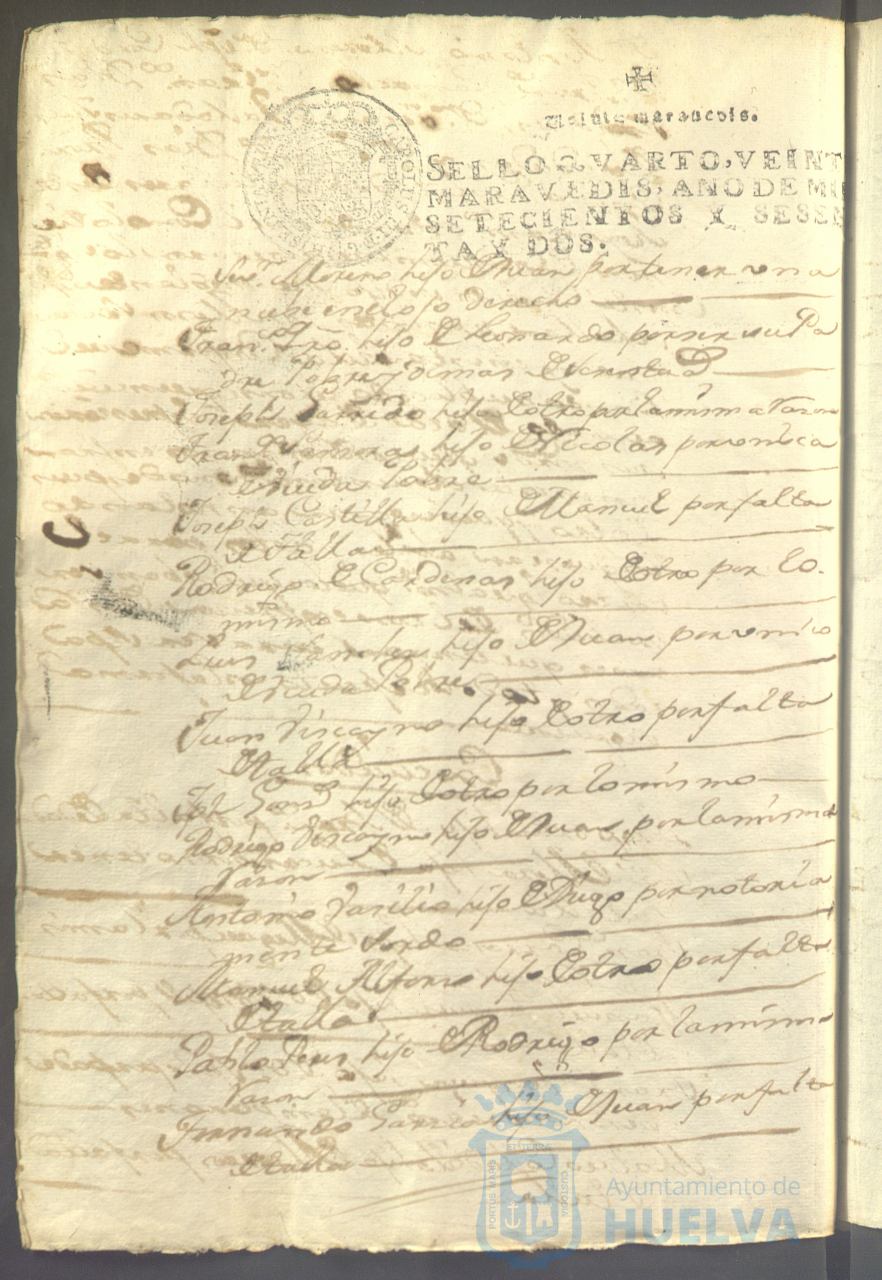 Veinte maravedis.
SELLO QVARTO, VEINT
MARAVEDIS, AÑO DE MI
SETECIENTOS Y SESEN
TA Y DOS.
Moreno hijo de Juan por tener una
nube en el ojo derecho
Fran.co hijo de Leonardo por ser su Pa
dre Pobre y demas de
Joseph Garrido hijo de otro por la misma razon
Fran.co hijo de Nicolas por unico
de Viuda Pobre
Joseph Castilla hijo de Manuel por falta
de talla
Rodrigo de Cardenas hijo de otro por lo
mismo
Luis Sanchez hijo de Juan por unico
de Viuda Pobre
Juan Viscayno hijo de otro por falta
de talla
Jph hijo de otro por lo mismo
Rodrigo Viscayno hijo de Juan por la misma
razon
Antonio hijo de Diego por notoria
mente sordo
Manuel Alfonso hijo de otro por falta
de talla
Pablo hijo de Rodrigo por la misma
razon
Fernando Garcia hijo de Juan por falta
de talla
PORTUS MARIS
CUSTODIA
Ayuntamiento de
HUELVA